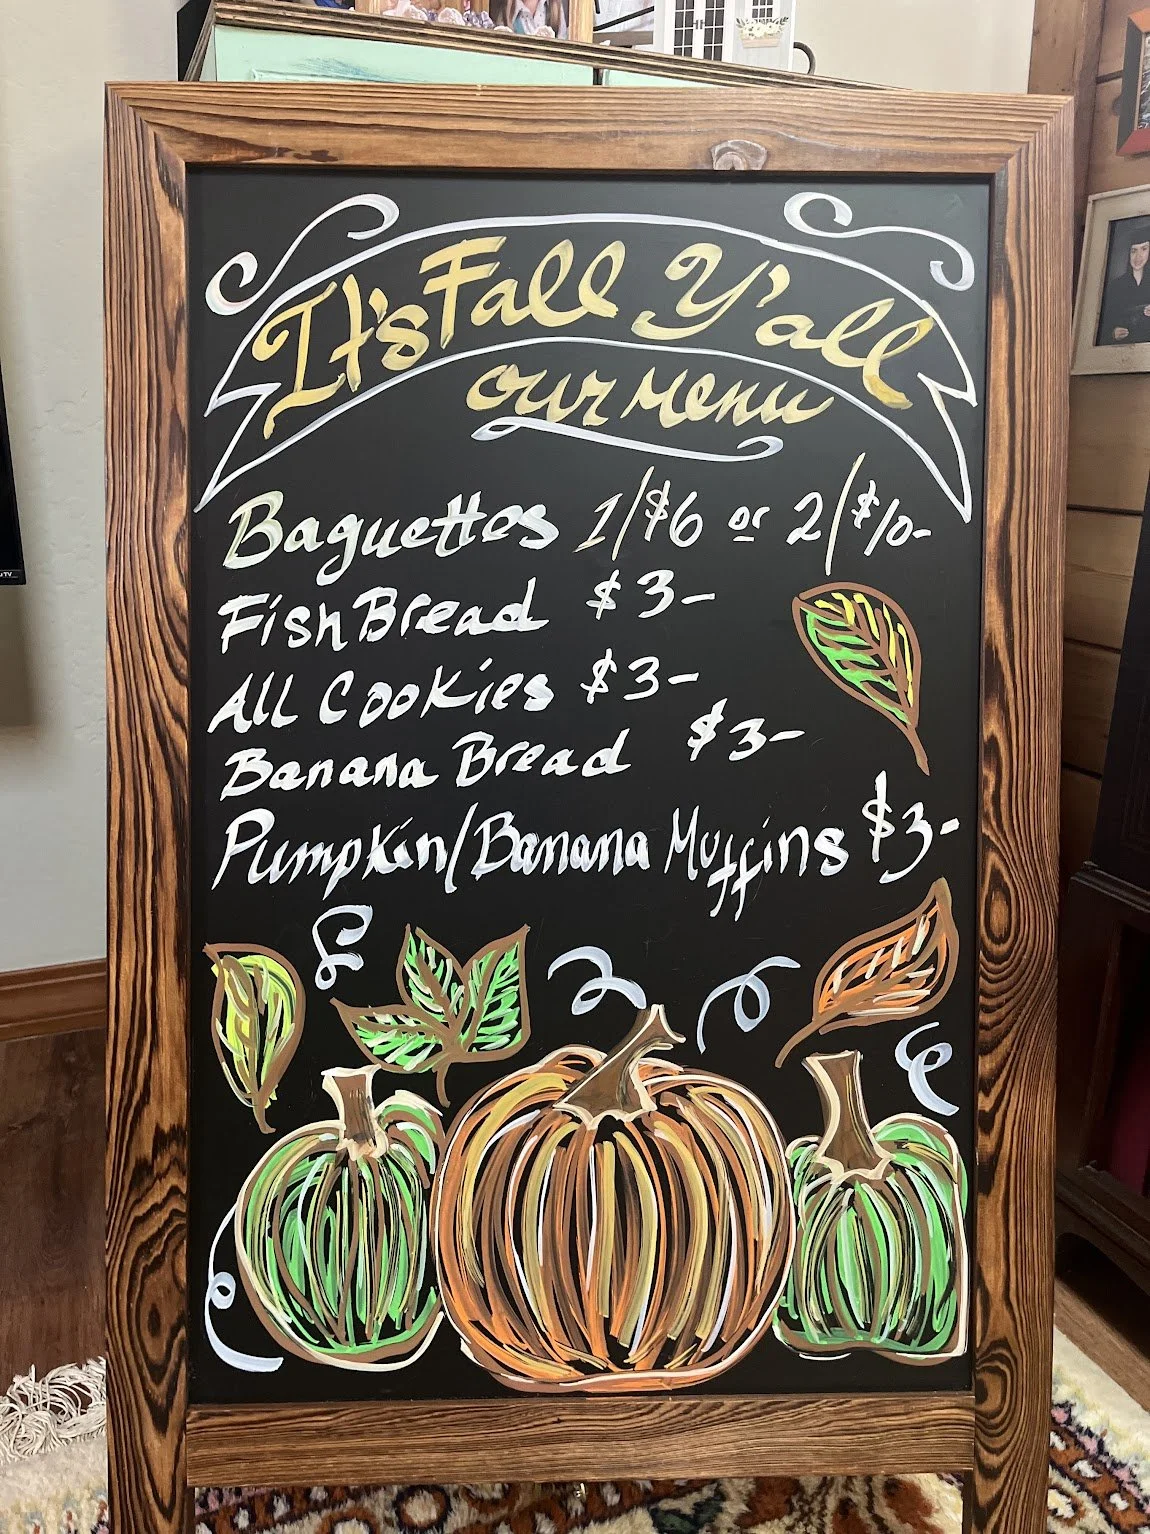 It's Fall Y'all
our menu
Baguettes 1/$6 or 2/$10-
Fish Bread $3-
All Cookies $3-
Banana Bread $3-
Pumpkin/Banana Muffins $3-
TV